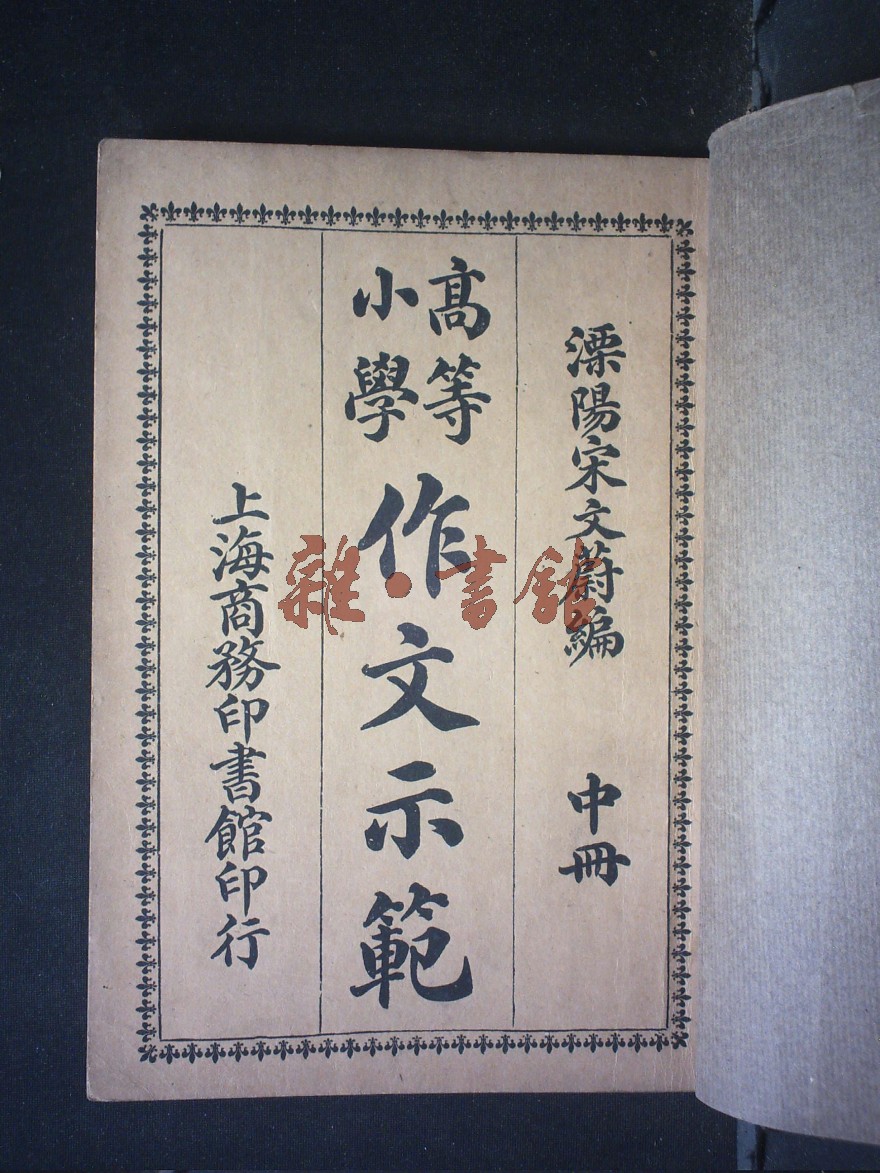 溧陽宋文蔚編　中冊
高等
小學
作文示範
上海商務印書館印行
雜·書館